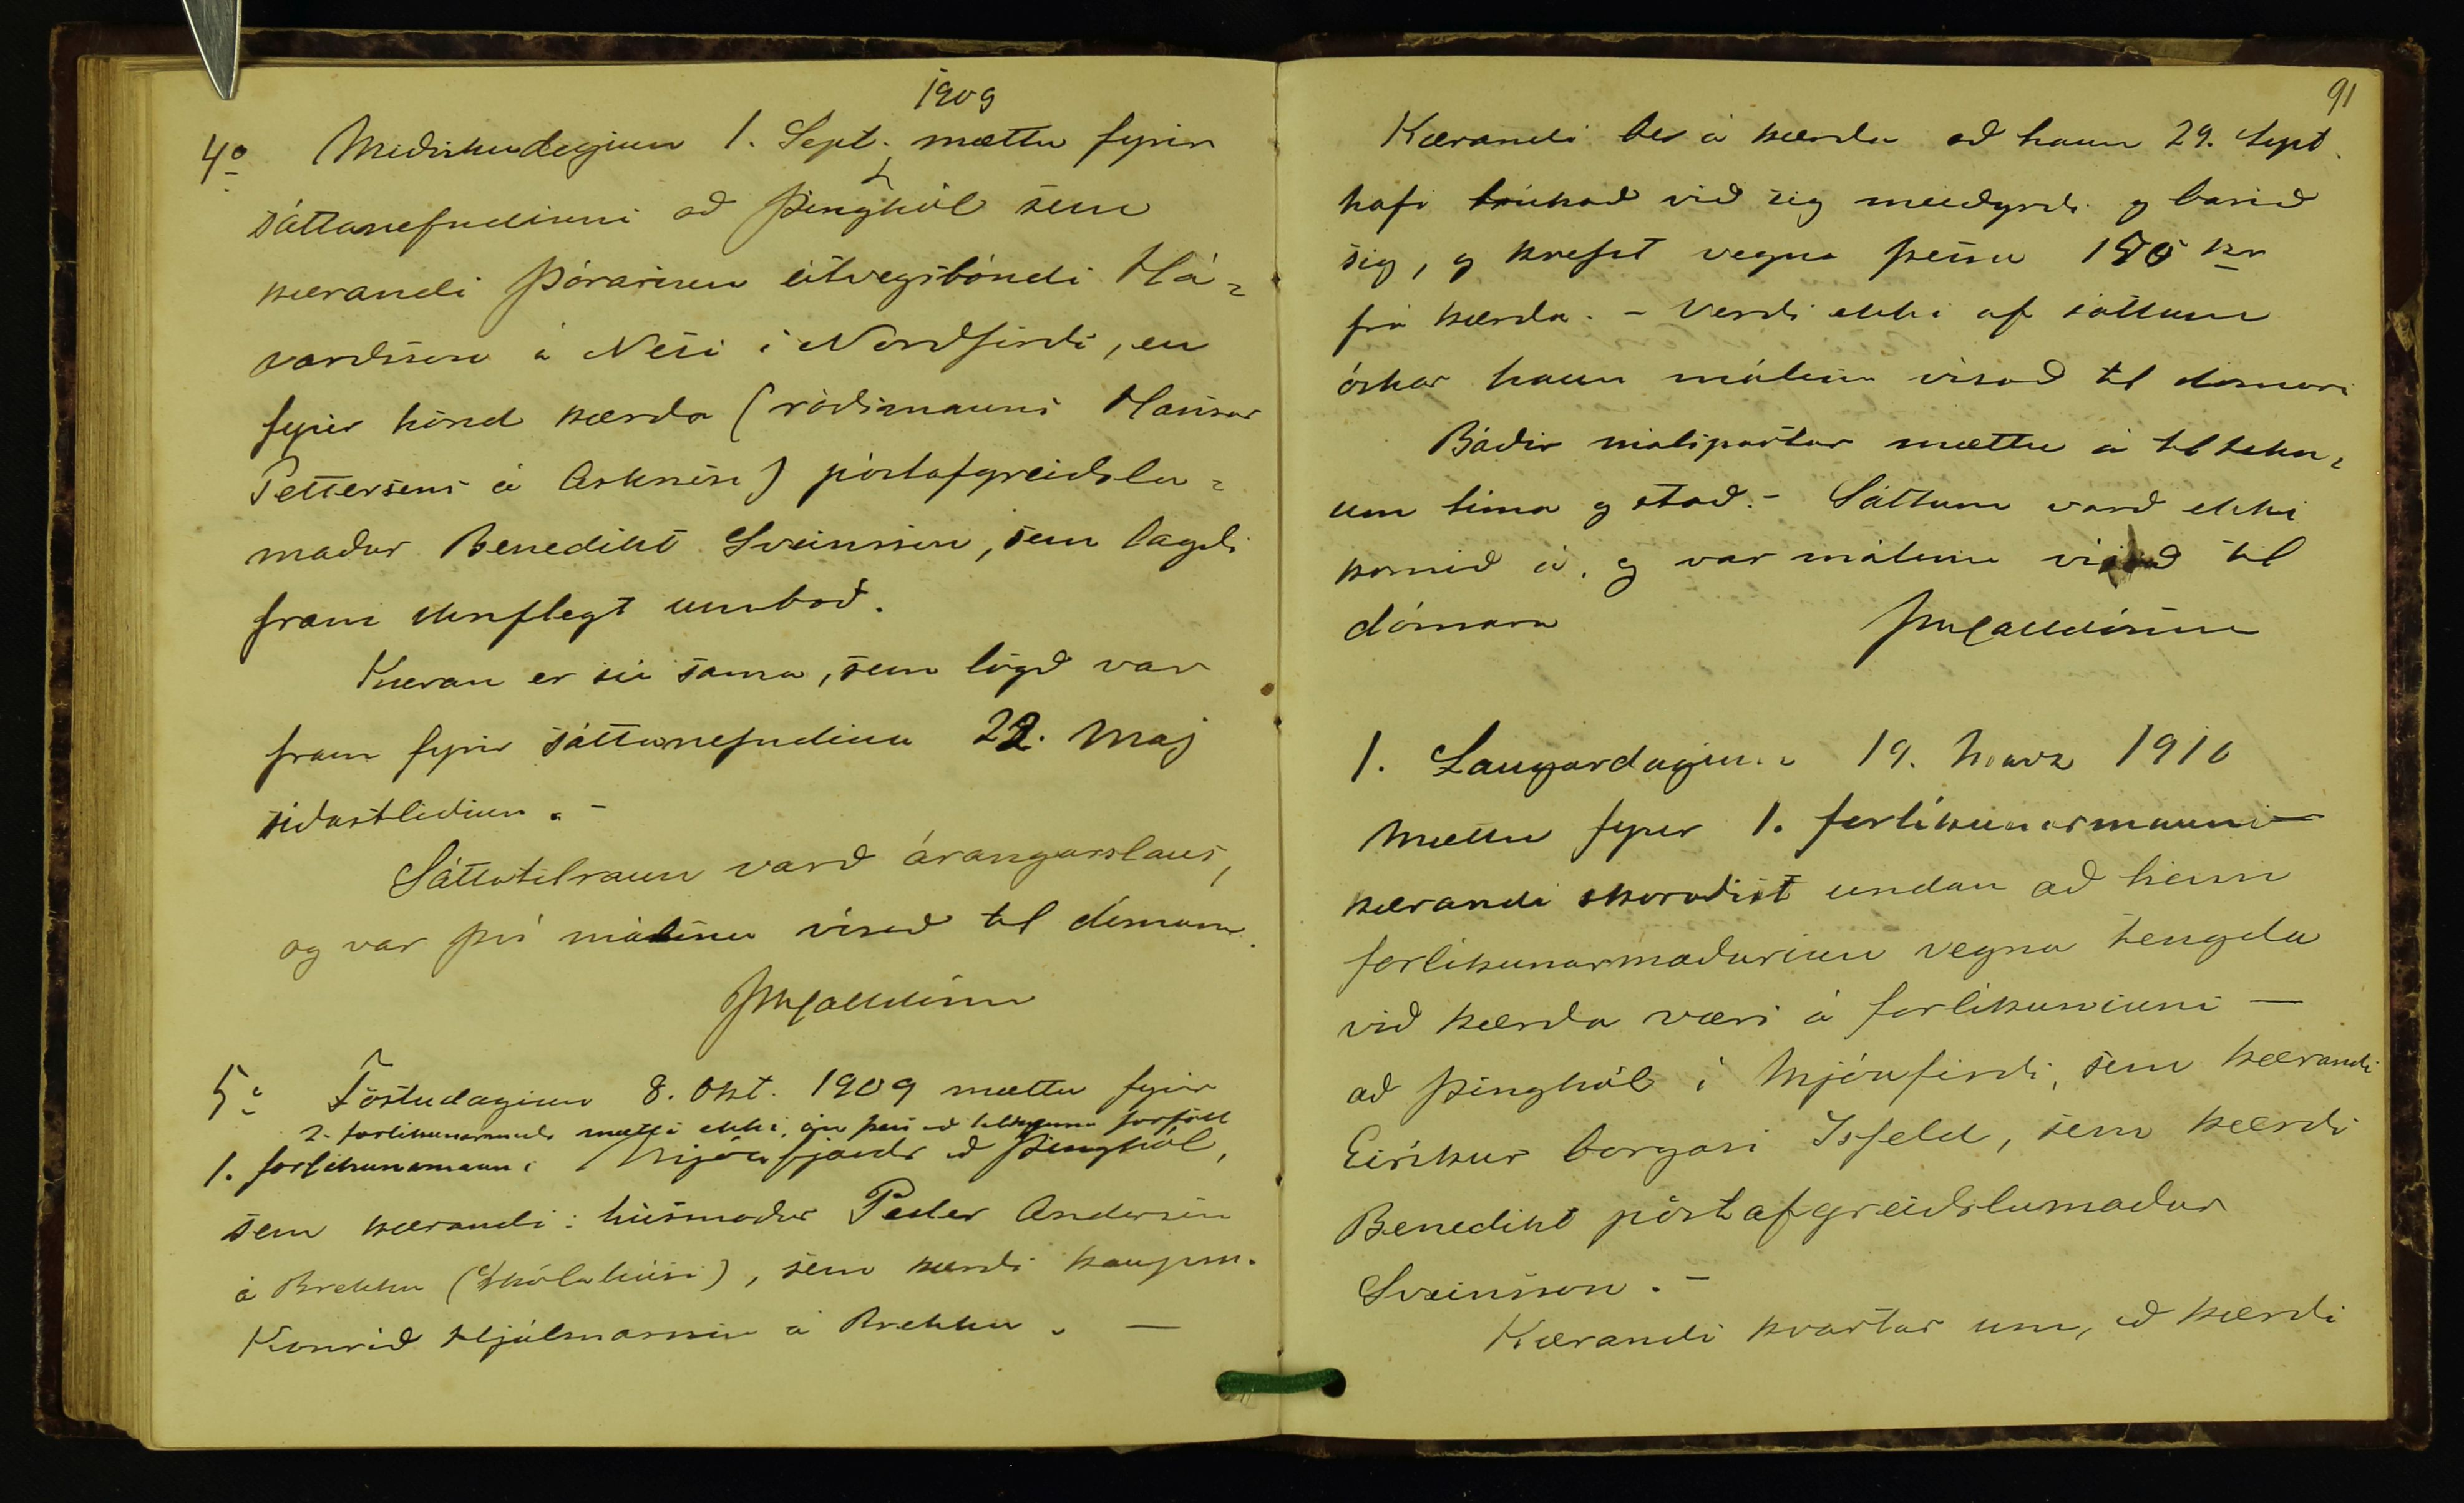 1909
4o Miðvikudaginn 1. Sept. mættu fyrir
sáttanefndinni að Þinghól sem
kærandi Þórarinn útvegsbóndi Há=
varðsson á Nesi í Norðfirði, en
fyrir hönd kærða (ráðsmanns Hansar
Pettersens á Asknesi) póstafgreiðslu=
maður Benedikt Sveinsson, sem lagði
fram skriflegt umboð.
Kæran er sú sama, sem lögð var
fram fyrir sáttanefndina 22. Maj
síðastliðinn. -
Sáttatilraun varð árangurslaus,
og var því málinu vísað til dómara.
5o Föstudaginn 8. Okt. 1909 mættu fyrir
2. forlikunarmaðr mætti ekki, forföll
1. forlikunarmanni Mjóafjarðr að Þinghól,
sem kærandi: húsmaður Peder Andersen
á Brekku (Skólahúsi), sem kærði kaupm.
Konráð Hjálmarsson á Brekku. —
91
Kærandi ber á kærða að hann 29. Sept.
hafi brúkað við sig meiðyrði og barið
sig, og krefst vegna þessu kr
frá kærða. - Verði ekki af sáttum
óskar hann málinu vísað til dómara
Báðir málspartar mættu á tiltekn=
um tíma og stað. - Sáttum varð ekki
komið á, og var málinu vísað til
dómara
1. Laugardaginn 19. Marz 1910
mættu fyrir 1. forlíkunarmanni —
kærandi skoraðist undan að hinn
forlíkunarmaðurinn vegna tengda
við kærða væri á forlíkuninni —
að Þinghól í Mjóafirði, sem kærandi
Eiríkur borgari Isfeld, sem kærði
Benedikt póstafgreiðslumaður
Sveinsson. -
Kærandi kvartar um, að kærði